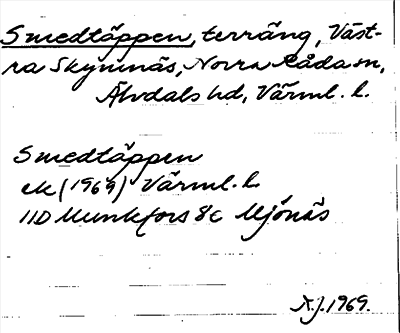 Smedtäppen, terräng, Väst-
ra Skymnäs, Norra Råda sn,
Älvdals hd, Värml. l.
Smedtäppen
ek (1969) Värml. l.
11D Munkfors 8c Mjönäs
A.J. 1969.